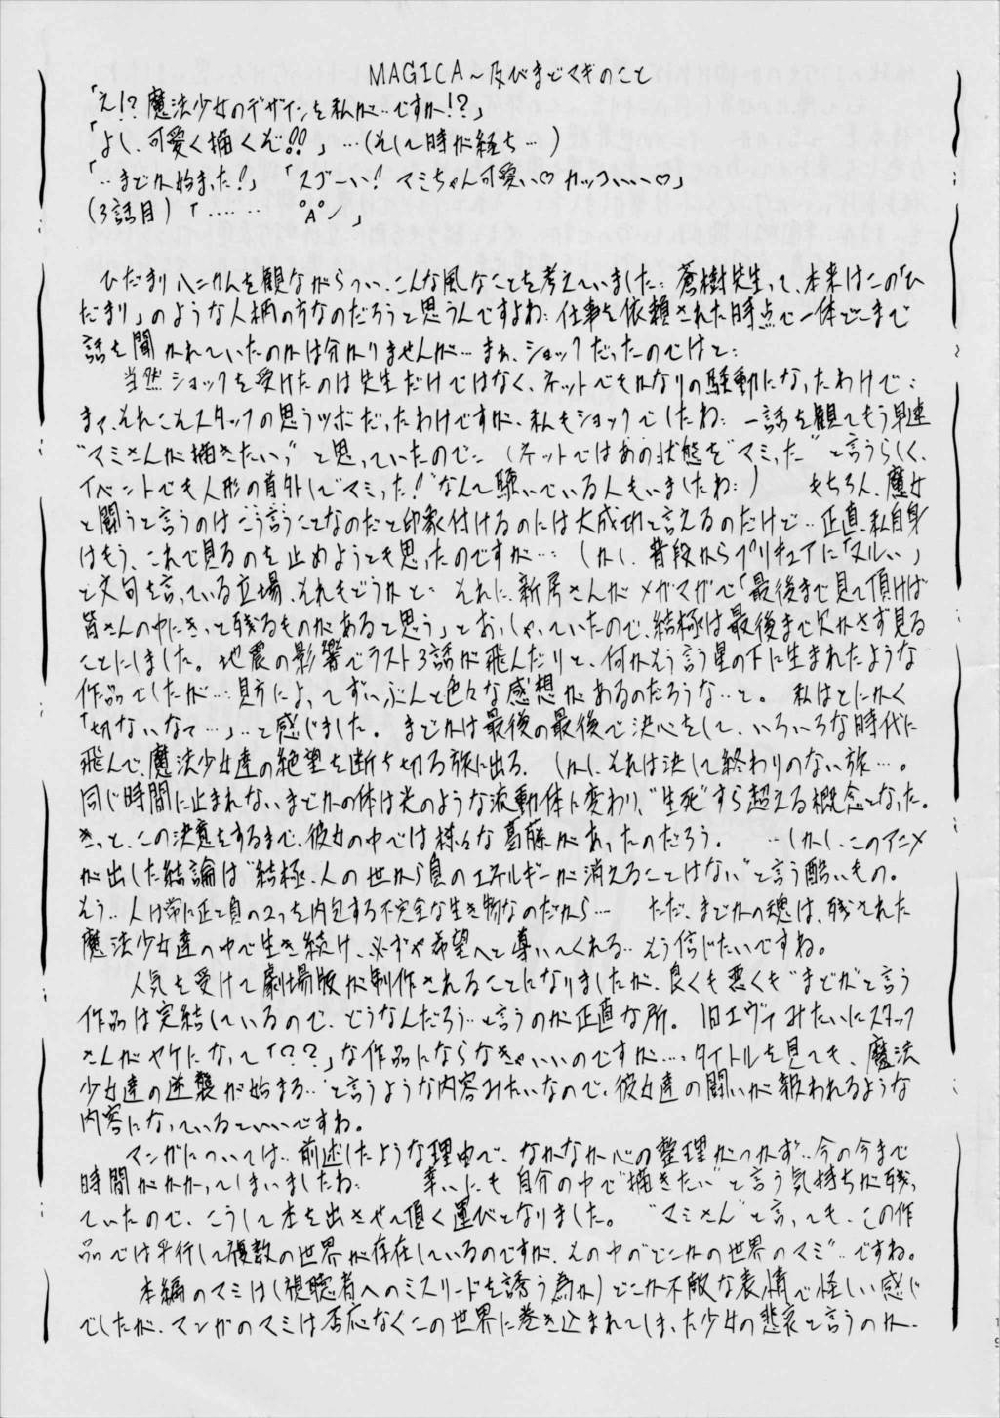 MAGICA～及びまどマギのこと
「え!?魔法少女のデザインを私が…ですか!?」
「よし、可愛く描くぞ!!」…(そして時が経ち…)
「…まどか始まった!」「スゴーい! マミちゃん可愛い♡カッコいいい♡」
(3話目)「……　°A°ノ」
ひだまりハニカムを観ながらつい、こんな風なことを考えていました: 蒼樹先生って、本来はこの「ひ
だまり」のような人柄の方なのだろうと思うんですよね: 仕事を依頼された時点で一体どこまで
話を聞かれていたのかは分かりませんが…まぁ、ショックだったのではと:
当然ショックを受けたのは先生だけではなく、ネットでもかなりの騒動になったわけで:
まァ、それこそスタッフの思うツボだったわけですが、私もショックでしたね: 一話を観てもう早速
“マミさんが描きたいっ”と思っていたので: (ネットではあの状態を“マミった”と言うらしく、
イベントでも人形の首外して“マミった!”なんて騒いでいる人もいましたね:) もちろん、魔女
と闘うと言うのはこう言うことなのだと印象付けるのには大成功と言えるのだけど…正直、私自身
はもう、これで見るのを止めようとも思ったのですが… しかし、普段からプリキュアに「ヌルい」
と文句を言っている立場、それもどうかと: それに、新房さんがメガマガで「最後まで見て頂けば
皆さんの中にきっと残るものがあると思う」とおっしゃっていたので、結極は最後まで欠かさず見る
ことにしました。地震の影響でラスト3話が飛んだりと、何かそう言う星の下に生まれたような
作品でしたが…見方によってずいぶんと色々な感想があるのだろうな…と。 私はとにかく
「切ないなぁ…」…と感じました。まどかは最後の最後で決心をして、いろいろな時代に
飛んで、魔法少女達の絶望を断ち切る旅に出る. しかし、それは決して終わりのない旅…。
同じ時間に止まれないまどかの体は光のような波動体へ変わり、“生死”すら超える概念となった。
きっと、この決意をするまで、彼女の中では様々な葛藤があったのだろう. …しかし、このアニメ
が出した結論は“結極、人の世から負のエネルギーが消えることはない”と言う酷いもの。
そう…人は常に正と負の2つを内包する不完全な生き物なのだから… ただ、まどかの魂は、残された
魔法少女達の中で生き続け、必ずや希望へと導いてくれる…そう信じたいですね。
人気を受けて劇場版が制作されることになりましたが、良くも悪くも“まどか”と言う
作品は完結しているので、どうなんだろう…と言うのが正直な所。旧エヴァみたいにスタッフ
さんがヤケになって「??」な作品にならなきゃいいのですが…、タイトルを見ても、魔法
少女達の逆襲が始まる…と言うような内容みたいなので、彼女達の闘いが報われるような
内容になっているといいですね。
マンガについては…前述したような理由で、なかなか心の整理がつかず…今の今まで
時間がかかってしまいましたね: 幸いにも自分の中で“描きたい”と言う気持ちが残っ
ていたので、こうして本を出させて頂く運びとなりました。“マミさん”と言っても、この作
品では平行して複数の世界が存在しているのですが、その中の“どこかの世界のマミ”…ですね。
本編のマミは(視聴者へのミスリードを誘う為か)どこか不敵な表情で怪しい感じ
でしたが、マンガのマミは否応なくこの世界に巻き込まれてしまった少女の悲哀と言うのか、